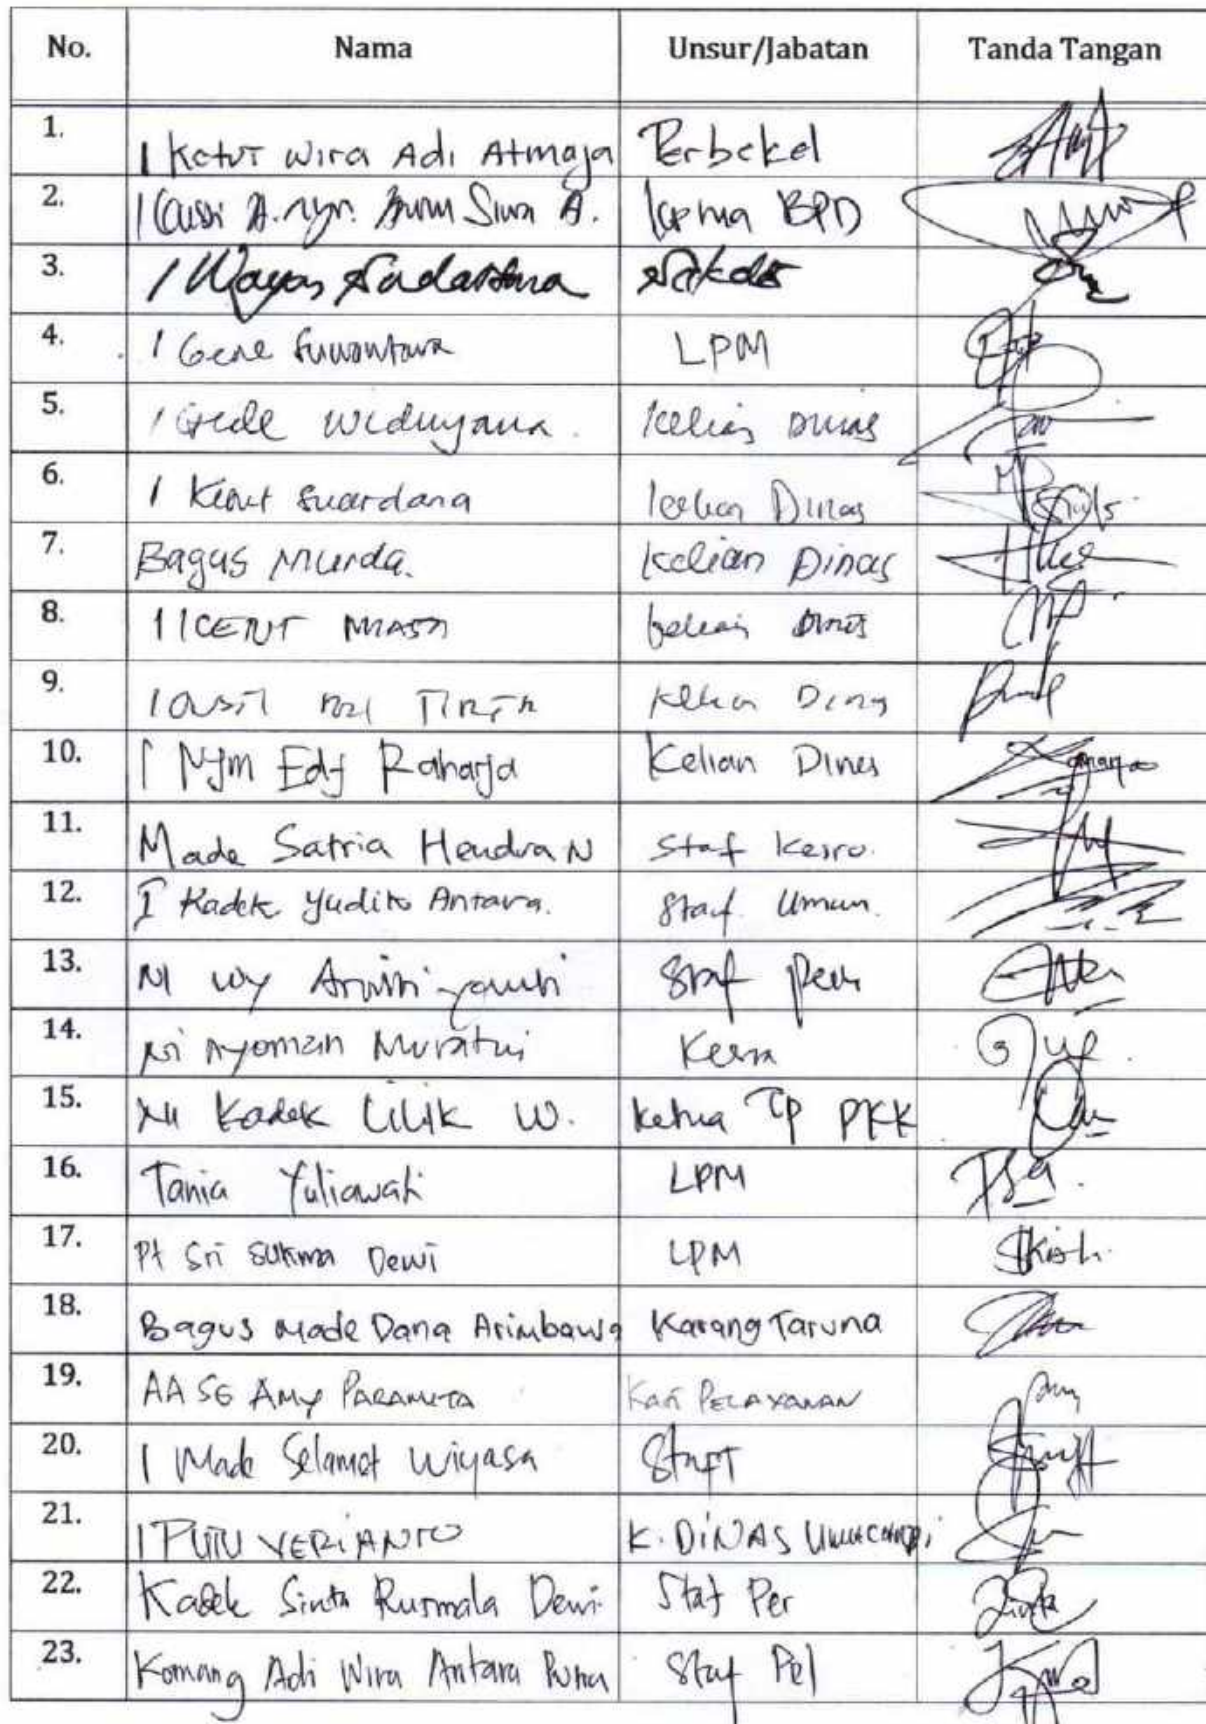 No. Nama Unsur/Jabatan Tanda Tangan
1. I Ketut Wira Adi Atmaja Perbekel
2. I Gusti A. Nyn. A.
3. I Wayan
4. I Gede Suwantara LPM
5. I Gede Widnyana. Kelian Dinas
6. I Ketut Suardana Kelian Dinas
7. Bagus Murda. Kelian Dinas
8. I KETUT Kelian Dinas
9. I GUSTI Kelian Dinas
10. I Nym Edy Raharja Kelian Dinas
11. Made Satria Hendra N Staf Kesra.
12. I Kadek Yudik Antara. Staf Umum.
13. Ni Wy Staf
14. Ni Nyoman Muratni Kesra
15. Ni Kadek Lilik W. Ketua TP PKK
16. Tania Yuliawati LPM
17. Pt Sri Sukma Dewi LPM
18. Bagus Made Dana Arimbawa Karang Taruna
19. AA SG AMY PARAMITA PELAYANAN
20. I Made Selamet Wiyasa Staff
21. I PUTU VERIANTO K. DINAS
22. Kadek Sinta Rusmala Dewi Staf Per
23. Komang Adi Wira Antara Putra Staf Pel